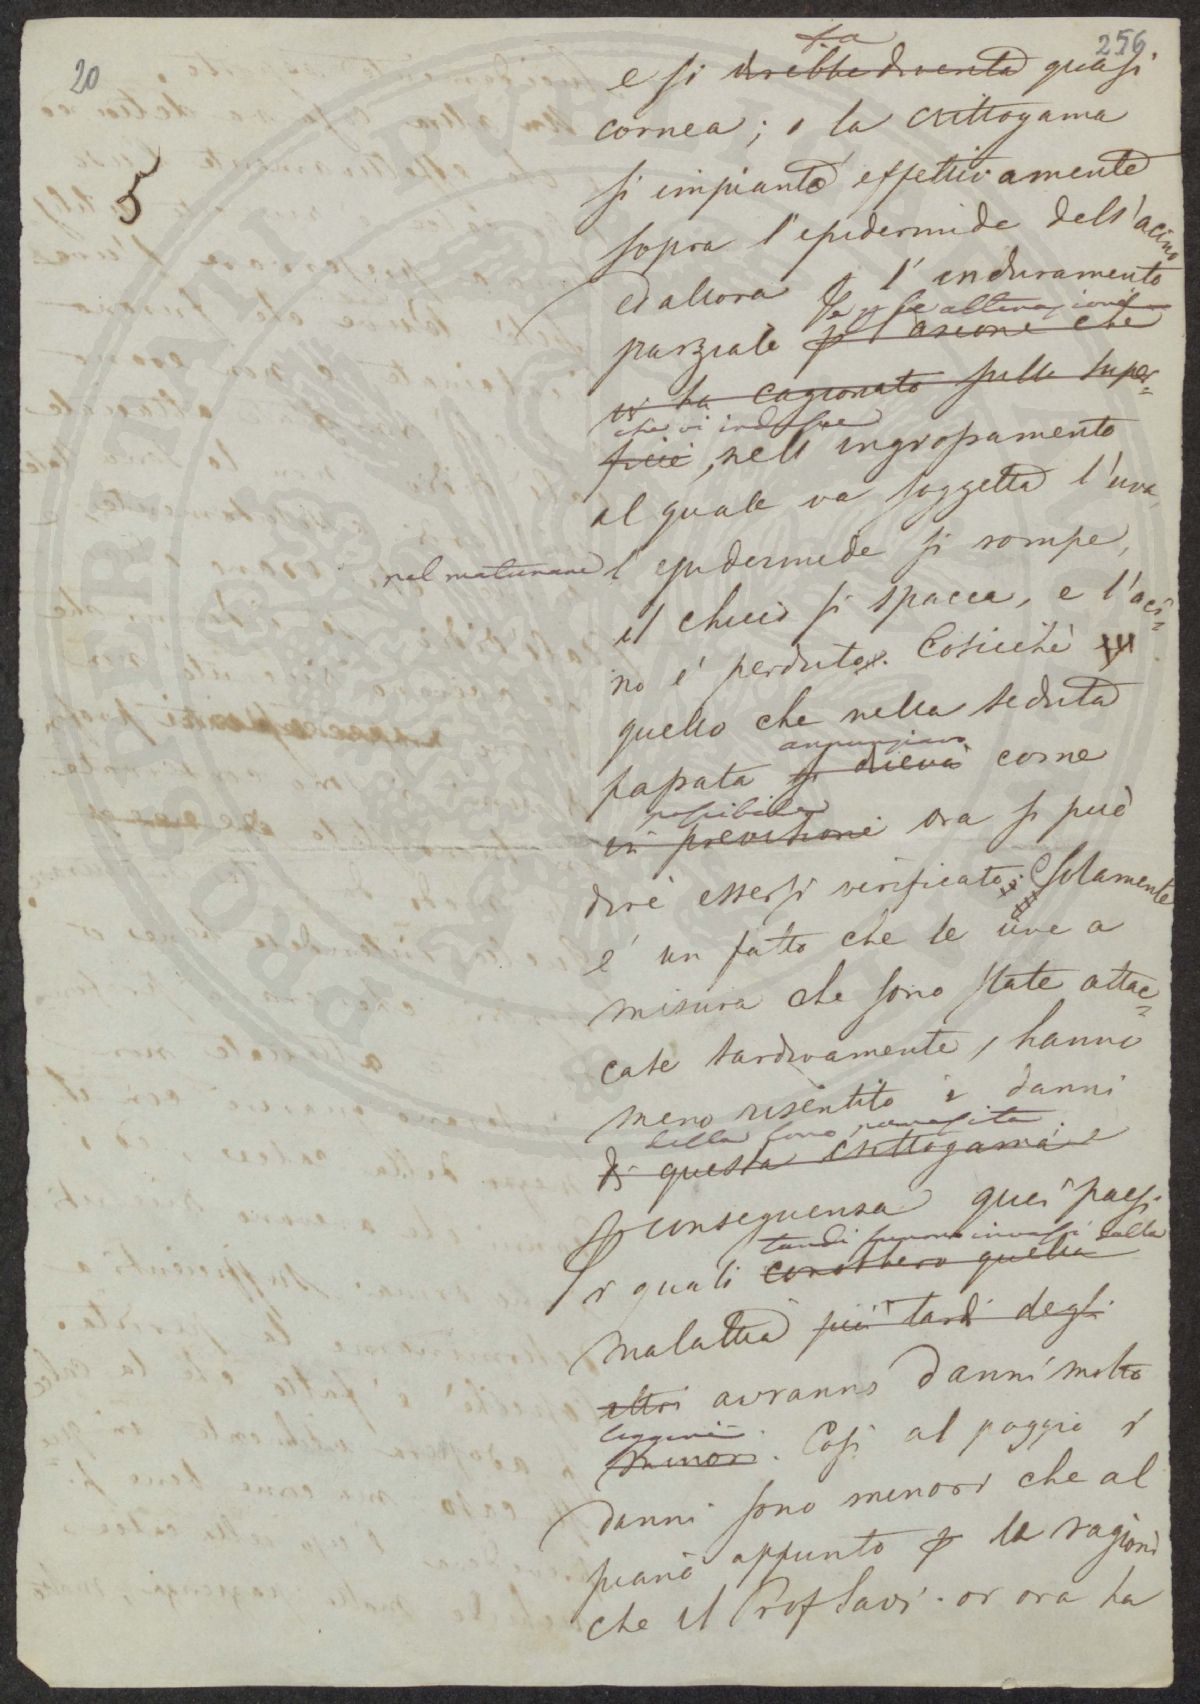 20
256
5
fa
e si direbbe diventa quasi
cornea; o la crittogama
si impianta effettivamente
sopra l'epidermide dell'acino
ed allora p l'induramento
le alterazioni
parziale p l'azione che
vi ha cagionato sulla super-
che vi induce
ficie, nell'ingrossamento
al quale va soggetta l'uva
nel maturare l'epidermide si rompe,
il chicco si spacca, e l'aci-
no é perduto. Cosicchè
quello che nella seduta
annunziavo
passata si dicevo come
possibile
in previsione ora si può
dire essersi verificato: Solamente
é un fatto che le uve a
misura che sono state attac-
cate tardivamente, hanno
meno risentito i danni
della loro parassita
di questa crittogama e
p conseguenza quei paesi
tardi furono invasi dalla
i quali
quella
malattia più tardi degli
altri avranno danni molto
leggeri
minori. Così al poggio i
danni sono minori che al
piano appunto p le ragioni
che il Prof Savi or ora ha